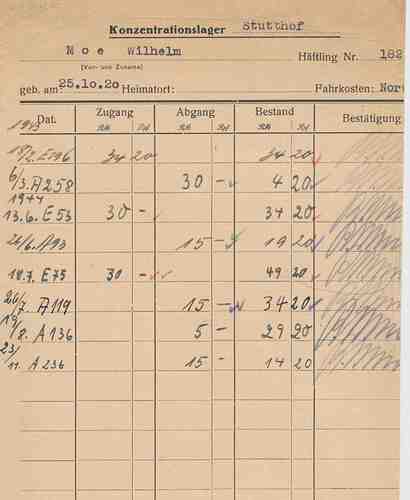 Konzentrationslager Stutthof
Moe Wilhelm Häftling Nr. 182
(Vor- und Zuname)
geb. am 25.10.20 Heimatort: Fahrkosten: Nor
Dat. Zugang Abgang Bestand Bestätigung
1943 RM Pf RM Pf RM Pf
18/2. E196 34 20 34 20
6/3. A258 30 - 4 20
1944
13.6. E53 30 - 34 20
26/6. A93 15 - 19 20
18.7. E75 30 - 49 20
26/7. A119 15 - 34 20
19/8. A136 5 - 29 20
23/11. A236 15 - 14 20